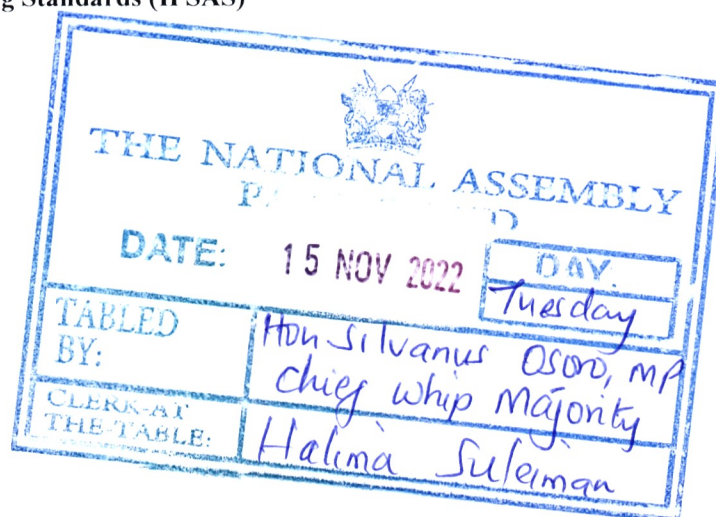 g Standards (IPSAS)
THE NATIONAL ASSEMBLY
DATE: 15 NOV 2022
DAY.
Tuesday
TABLED
BY:
Hon Silvanus Osoro, MP
Chief Whip Majority
CLERK-AT
THE-TABLE:
Halima Suleiman